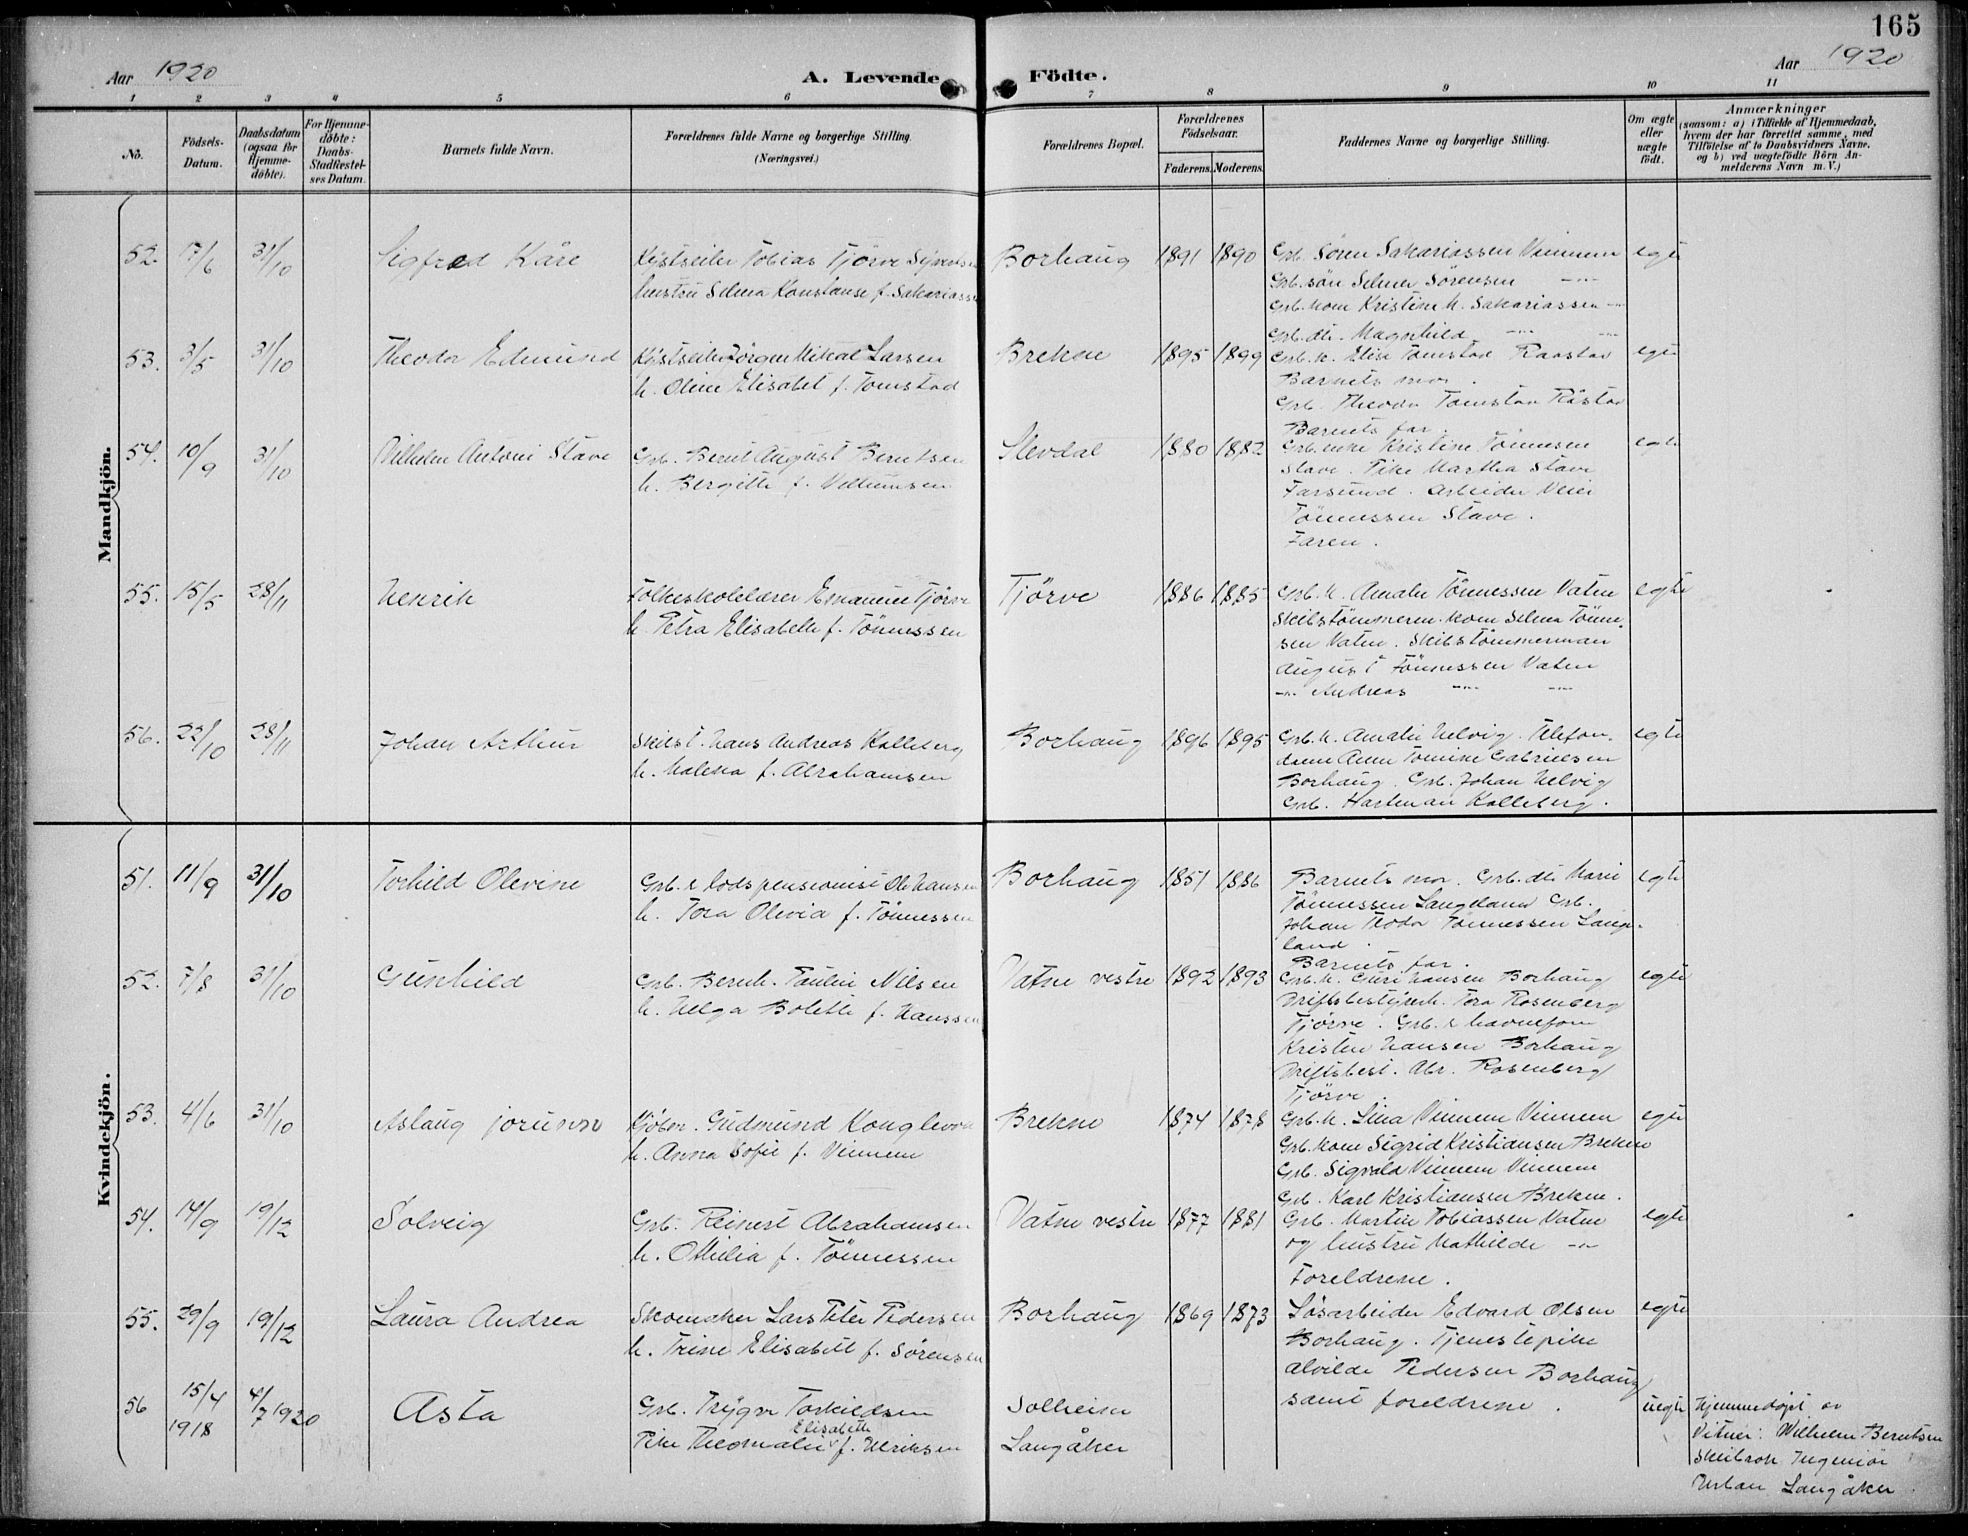 165
Aar 1920
A. Levende Födte.
Aar 1920
1 2 3 4 5 6 7 8 9 10 11
No.
Födsels-Datum.
Daabsdatum (ogsaa för Hjemme-döbte).
For Hjemme-döbte: Daabs-Stadfæstel-ses Datum.
Barnets fulde Navn.
Forældrenes fulde Navne og borgerlige Stilling.
(Næringsvei.)
Forældrenes Bopæl.
Forældrenes Födselsaar.
Faderens. Moderens.
Faddernes Navne og borgerlige Stilling.
Om ægte eller uægte födt.
Anmærkninger
(saasom: a) i Tilfælde af Hjemmedaab, hvem der har forrettet samme, med Tilföielse af to Daabsvidners Navne. og b) ved uægtefödte Börn An-melderens Navn m. V.)
Mandkjön.
52. 17/6 31/10 Sigfred Kåre
Kystseiler Tobias Tjörve Syvertsen
hustru Selma Konstanse f. Sakariassen
Borhaug 1891 1890
Grb. Sören Sakariassen Vinnem egte
Grb.sön Selmer Sörensen -"-
Grb.kone Kristine M. Sakariassen -"-
Grb.dt. Magnhild -"- -"-
53. 3/5 31/10 Theodor Edmund
Kystseiler Jörgen Mikal Larsen
h. Oline Elisabet f. Tomstad
Brekne 1895 1899
Grb.k. Elise Tomstad Raastad egte
Barnets mor.
Grb. Theodor Tomstad Råstad
Barnets far.
54. 10/9 31/10 Vilhelm Antoni Stave
Grb. Bernt August Berntsen
h. Bergitte f. Villumsen
Slevdal 1880 1882
Grb.enke Kristine Tönnesen egte
Stave. Pike Martha Stave
Farsund. Arbeider Meier
Tönnessen Stave.
Faren.
55. 15/5 28/11 Henrik
Folkeskolelærer Emanuel Tjörve
h. Petra Elisabeth f. Tönnessen
Tjörve 1886 1885
Grb.k. Amalie Tönnessen Vatne egte
Skibstömmerm. kone Selma Tönne-
sen Vatne. Skibstömmerman
August Tönnessen Vatne
-"- Andreas -"- -"-
56. 22/10 28/11 Johan Arthur
Skibst. Hans Andreas Kalleberg
h. Malena f. Abrahamsen
Borhaug 1896 1895
Grb.k. Amalie Helvig. Telefon- egte
dame Anne Tomine Gabrielsen
Borhaug. Grb. Johan Helvig
Grb. Hartman Kalleberg.
Kvindekjön.
51. 11/9 31/10 Torhild Olevine
Grb. & lodspensionist Ole Hansen
h. Tora Olevia f. Tönnessen
Borhaug 1851 1886
Barnets mor. Grb.dt. Marie egte
Tönnessen Langeland Grb.
Johan Teodor Tönnessen Lange-
land.
Barnets far.
52. 7/8 31/10 Gunhild
Grb. Bernh. Paulin Nilsen
h. Helga Bolette f. Hanssen
Vatne vestre 1892 1893
Grb.k. Guri Hansen Borhaug egte
Driftsbestyrerh. Tora Rosenberg
Tjörve. Grb. & havnefom
Kristen Hansen Borhaug
Driftsbest. Abr. Rosenberg
Tjörve.
53. 4/6 31/10 Aslaug Jorunn
Kjöbm. Gudmund Konglevoll
h. Anna Sofie f. Vinnem
Brekne 1874 1878
Grb.k. Lina Vinnem Vinnem egte
Grb.kone Sigrid Kristiansen Brekne
Grb. Sigvald Vinnem Vinnem
Grb. Karl Kristiansen Brekne.
54. 14/9 19/12 Solveig
Grb. Reinert Abrahamsen
h. Othilia f. Tönnessen
Vatne vestre 1877 1881
Grb. Martin Tobiassen Vatne egte
og hustru Mathilde -"-
Foreldrene.
55. 29/9 19/12 Laura Andrea
Skomaker Lars Peter Pedersen
h. Trine Elisabeth f. Sörensen
Borhaug 1869 1873
Lösarbeider Edvard Olsen egte
Borhaug. Tjenestepike
Alvilde Pedersen Borhaug
samt foreldrene.
56 15/4 1918 4/7 1920 Asta
Grb. Trygve Torkildsen
Elisabeth
Pike Theomalie f. Ulriksen
Solheim
Langåker
uegte
Hjemmedöpt av
Vitner: Wilhelm Berntsen
Skeibrok Ingeniör
Urban Langåker.